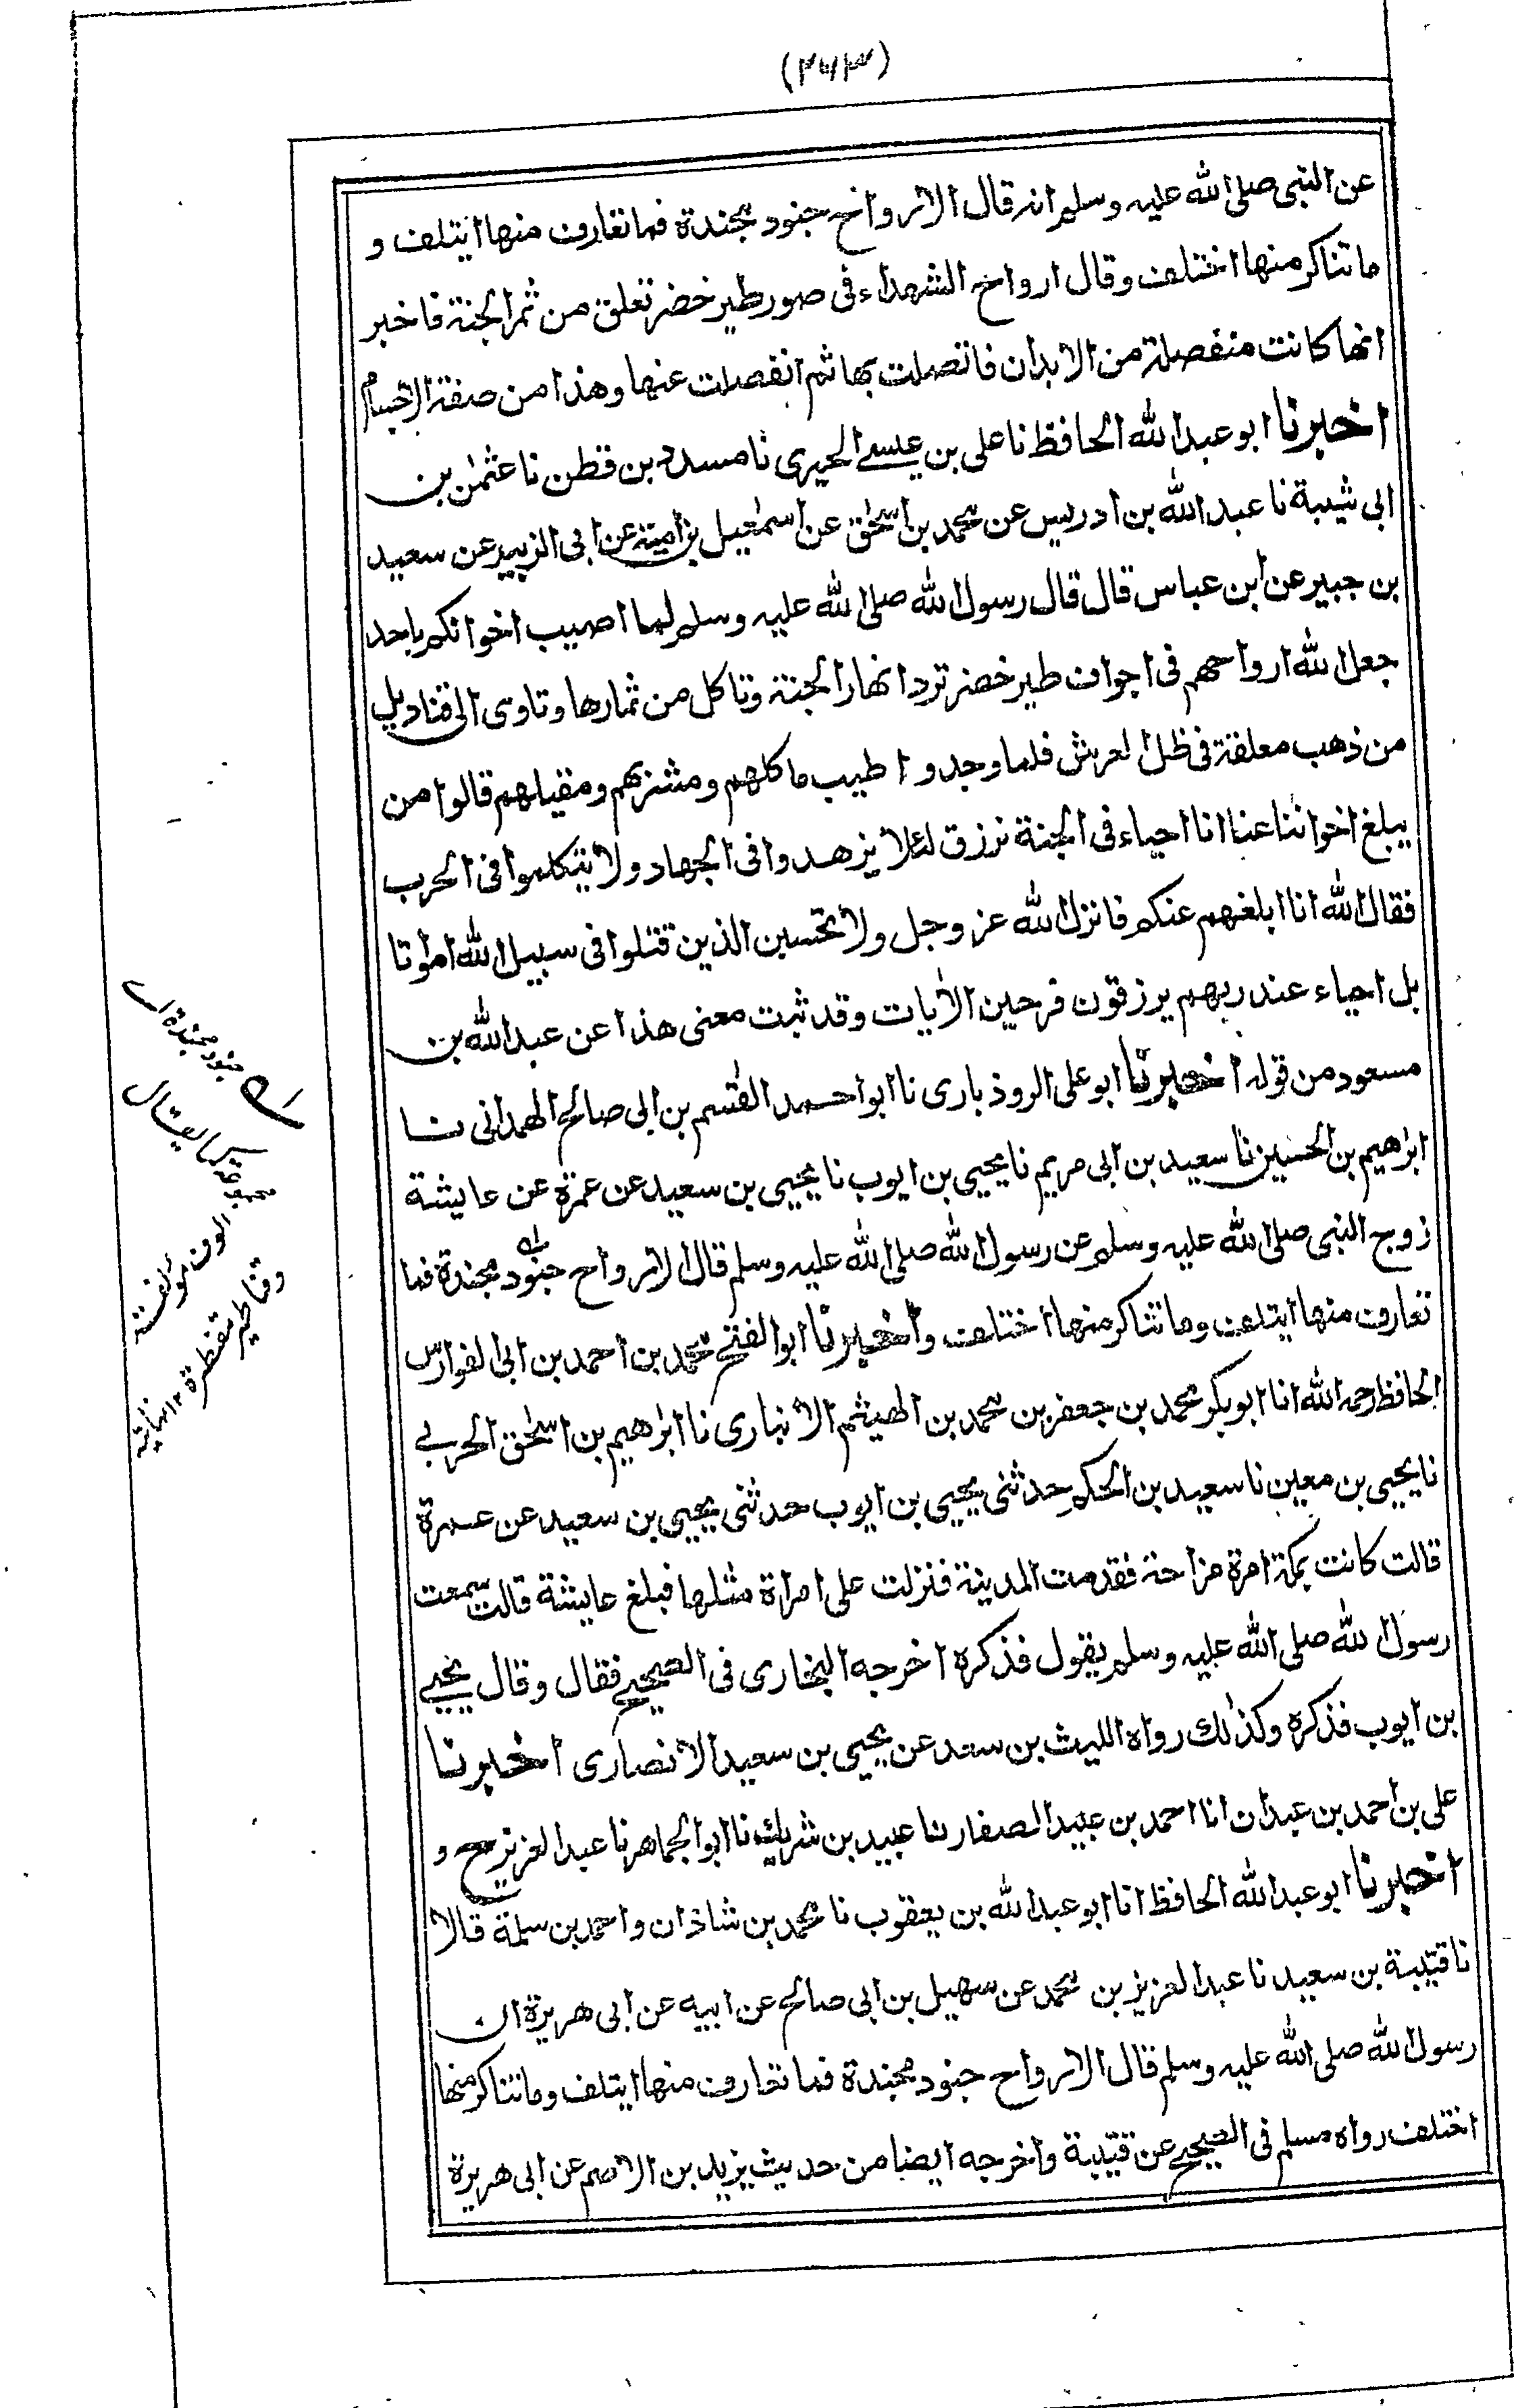 (٢٦٣)
عن النبي صلى الله عليه وسلم انه قال الارواح جنود مجندة فما تعارف منها ايتلف و
ما تناكر منها اختلف وقال ارواح الشهداء في صور طير خضر تعلق من ثمر الجنة فاخبر
انها كانت منفصلة من الابدان فاتصلت بها ثم انفصلت عنها وهذا من صفة الاجسام
اخبرنا ابو عبد الله الحافظ نا على بن عيسى الحيرى نا مسدد بن قطن نا عثمن بن
ابى شيبة نا عبد الله بن ادريس عن محمد بن اسحٰق عن اسمٰعيل بن امية عن ابى الزبير عن سعيد
بن جبير عن ابن عباس قال قال رسول الله صلى الله عليه وسلم لما اصيب اخوانكم باحد
جعل الله ارواحهم في اجواف طير خضر ترد انهار الجنة وتاكل من ثمارها وتاوى الى قناديل
من ذهب معلقة في ظل العرش فلما وجدوا طيب ماكلهم ومشربهم ومقيلهم قالوا من
يبلغ اخواننا عنا انا احياء في الجنة نرزق لئلا يزهدوا في الجهاد ولا يتكلموا في الحرب
فقال الله انا ابلغهم عنكم فانزل الله عز وجل ولا تحسبن الذين قتلوا في سبيل الله امواتا
بل احياء عند ربهم يرزقون فرحين الاٰيات وقد ثبت معنى هذا عن عبد الله بن
مسعود من قوله اخبرنا ابو على الروذبارى نا ابو احمد القٰسم بن ابى صالح الهمدانى نا
ابرٰهيم بن الحسين نا سعيد بن ابى مريم نا يحيى بن ايوب نا يحيى بن سعيد عن عمرة عن عايشة
زوج النبى صلى الله عليه وسلم عن رسول الله صلى الله عليه وسلم قال الارواح جنود مجندة فما
تعارف منها ايتلف وما تناكر منها اختلف واخبرنا ابو الفتح محمد بن احمد بن ابى الفوارس
الحافظ رحمه الله انا ابو بكر محمد بن جعفر بن محمد بن الهيثم الانبارى نا ابرٰهيم بن اسحٰق الحربى
نا يحيى بن معين نا سعيد بن الحكم حدثنى يحيى بن ايوب حدثنى يحيى بن سعيد عن عمرة
قالت كانت بمكة امرة مزاحة فقدمت المدينة فنزلت على امراة مثلها فبلغ عايشة قالت سمعت
رسول الله صلى الله عليه وسلم يقول فذكره اخرجه البخارى في الصحيح فقال وقال يحيى
بن ايوب فذكره وكذٰلك رواه الليث بن سعد عن يحيى بن سعيد الانصارى اخبرنا
على بن احمد بن عبدان انا احمد بن عبيد الصفار نا عبيد بن شريك نا ابو الجماهر نا عبد العزيز ح و
اخبرنا ابو عبد الله الحافظ انا ابو عبد الله بن يعقوب نا محمد بن شاذان واحمد بن سلمة قالا
نا قتيبة بن سعيد نا عبد العزيز بن محمد عن سهيل بن ابى صالح عن ابيه عن ابى هريرة ان
رسول الله صلى الله عليه وسلم قال الارواح جنود مجندة فما تعارف منها ايتلف وما تناكر منها
اختلف رواه مسلم في الصحيح عن قتيبة واخرجه ايضا من حديث يزيد بن الاصم عن ابى هريرة
جنود مجندة اى
مجموعة كما يقال
الوف مولفة
وقناطير مقنطرة ١٢ نهاية